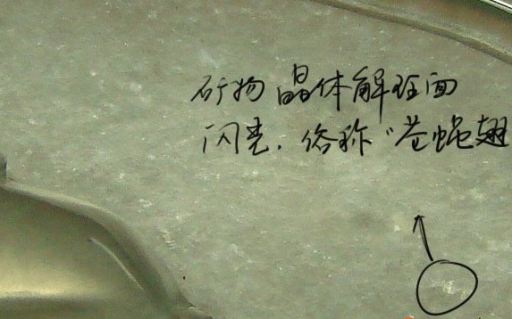 矿物晶体解理面
闪亮，俗称“苍蝇翅